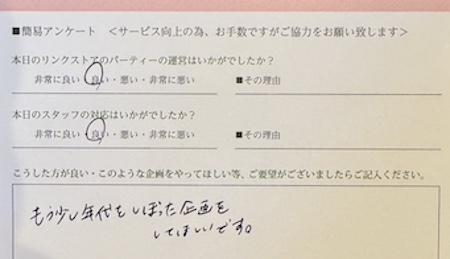 ■簡易アンケート <サービス向上の為、お手数ですがご協力をお願い致します>
本日のリンクストアのパーティーの運営はいかがでしたか?
非常に良い・良い・悪い・非常に悪い ■その理由
本日のスタッフの対応はいかがでしたか?
非常に良い・良い・悪い・非常に悪い ■その理由
こうした方が良い・このような企画をやってほしい等、ご要望がございましたらご記入ください。
もう少し年代をしぼった企画を
してほしいです。